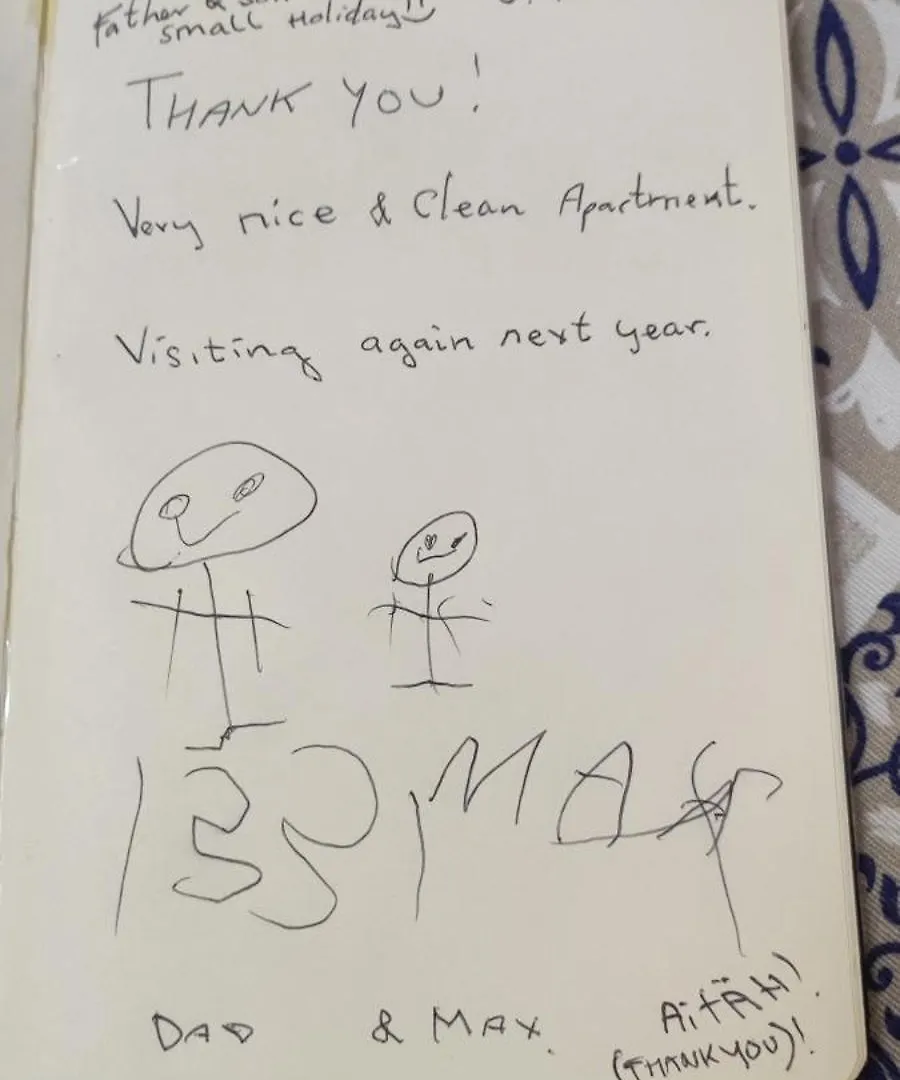 Father &
small Holiday
THANK YOU!
Very nice & Clean Apartment.
Visiting again next year.
MA
DAD & MAX.
AiTÄH!
(THANK YOU)!